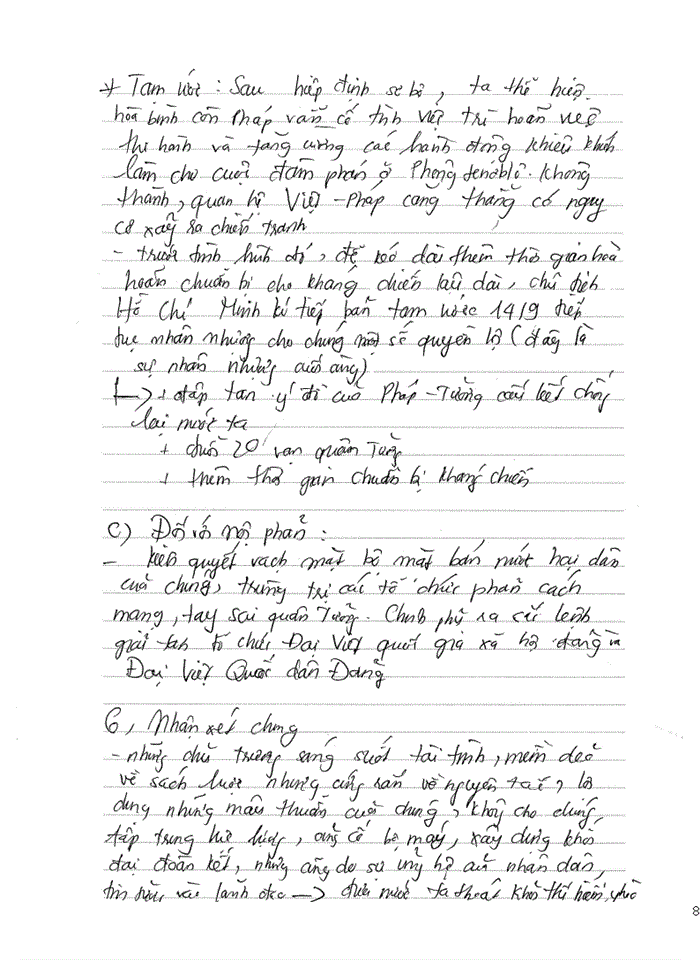 * Tạm ước: Sau hiệp định sơ bộ, ta thể hiện
hòa bình còn Pháp vẫn cố tình việt trì hoãn việc
thi hành và tăng cường các hành động khiêu khích
làm cho cuộc đàm phán ở Phông không
thành, quan hệ Việt - Pháp căng thẳng có nguy
cơ xẩy ra chiến tranh
- trước tình hình đó, để kéo dài thêm thời gian hòa
hoãn chuẩn bị cho kháng chiến lâu dài, chủ tịch
Hồ Chí Minh kí tiếp bản tạm ước 14/9 tiếp
tục nhân nhượng cho chúng một số quyền lợi (đây là
sự nhân nhượng cuối cùng)
+ đập tan ý đồ của Pháp - Tưởng cấu kết chống
lại nước ta
+ đuổi 20 vạn quân Tưởng
+ thêm thời gian chuẩn bị kháng chiến
C) Đối với nội phản:
- kiên quyết vạch mặt bộ mặt bán nước hại dân
của chúng, trừng trị các tổ chức phản cách
mạng, tay sai quân Tưởng. Chính phủ ra sắc lệnh
giải tán tổ chức Đại Việt quốc gia xã hội đảng và
Đại Việt Quốc dân Đảng
6, Nhận xét chung
- những chủ trương sáng suốt tài tình, mềm dẻo
về sách lược nhưng cứng rắn về nguyên tắc, lợi
dụng những mâu thuẫn của chúng, không cho chúng
tập trung lực lượng, củng cố bộ máy, xây dựng khối
đại đoàn kết, những cũng do sự ủng hộ của nhân dân,
tin tưởng vào lãnh đạo → đưa nước ta thoát khỏi thế hiểm,
8